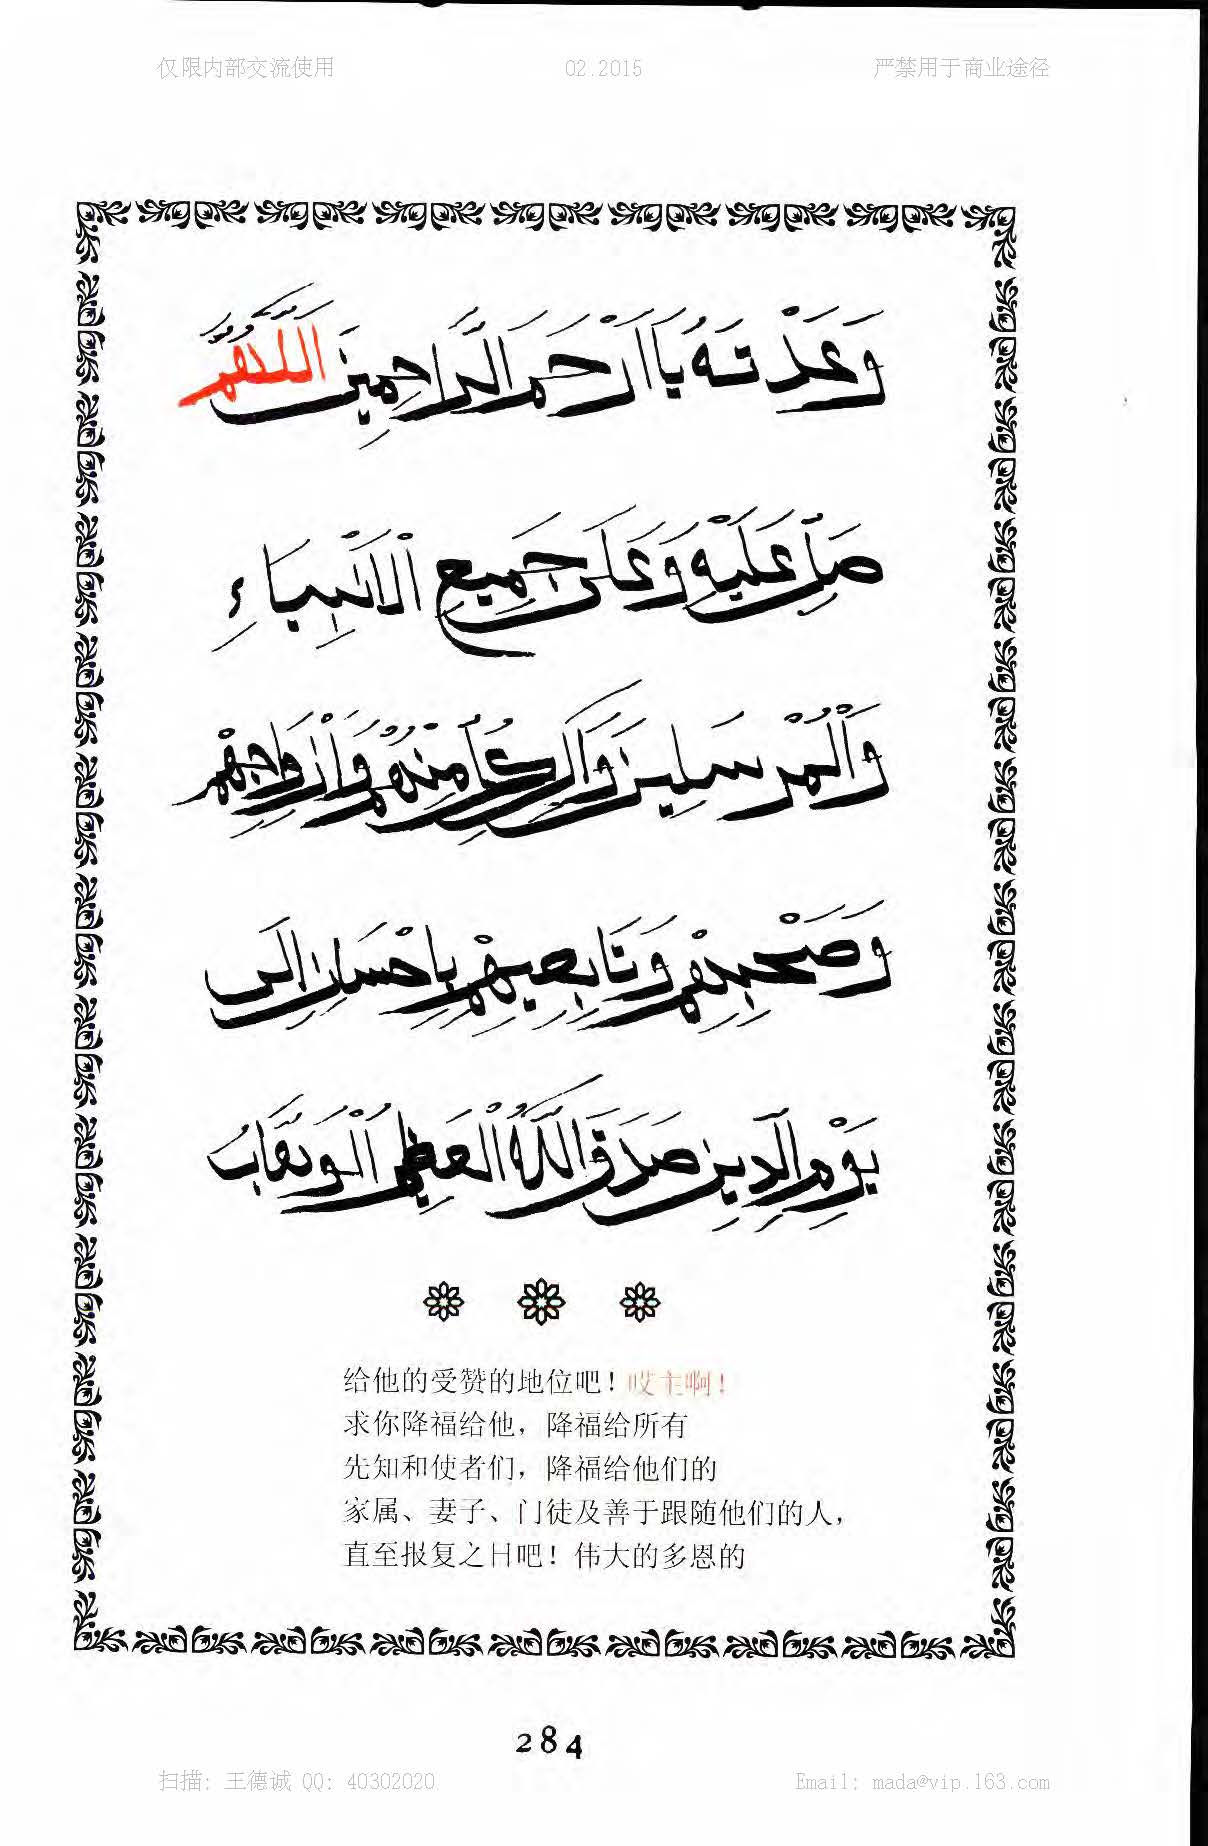 仅限内部交流使用 02.2015 严禁用于商业途径
وَعَدْتَهُ يَا اَرْحَمَ الرَّاحِمِينَ اَللّٰهُمَّ
صَلِّ عَلَيْهِ وَعَلَى جَمِيعِ الْاَنْبِيَاءِ
وَالْمُرْسَلِينَ وَاٰلِ كُلٍّ مِنْهُمْ وَاَزْوَاجِهِمْ
وَصَحْبِهِمْ وَتَابِعِيهِمْ بِاِحْسَانٍ اِلَى
يَوْمِ الدِّينِ صَدَقَ اللّٰهُ الْعَظِيمُ الْوَهَّابُ
给他的受赞的地位吧！哎主啊！
求你降福给他，降福给所有
先知和使者们，降福给他们的
家属、妻子、门徒及善于跟随他们的人，
直至报复之日吧！伟大的多恩的
284
扫描: 王德诚 QQ: 40302020 Email: mada@vip.163.com